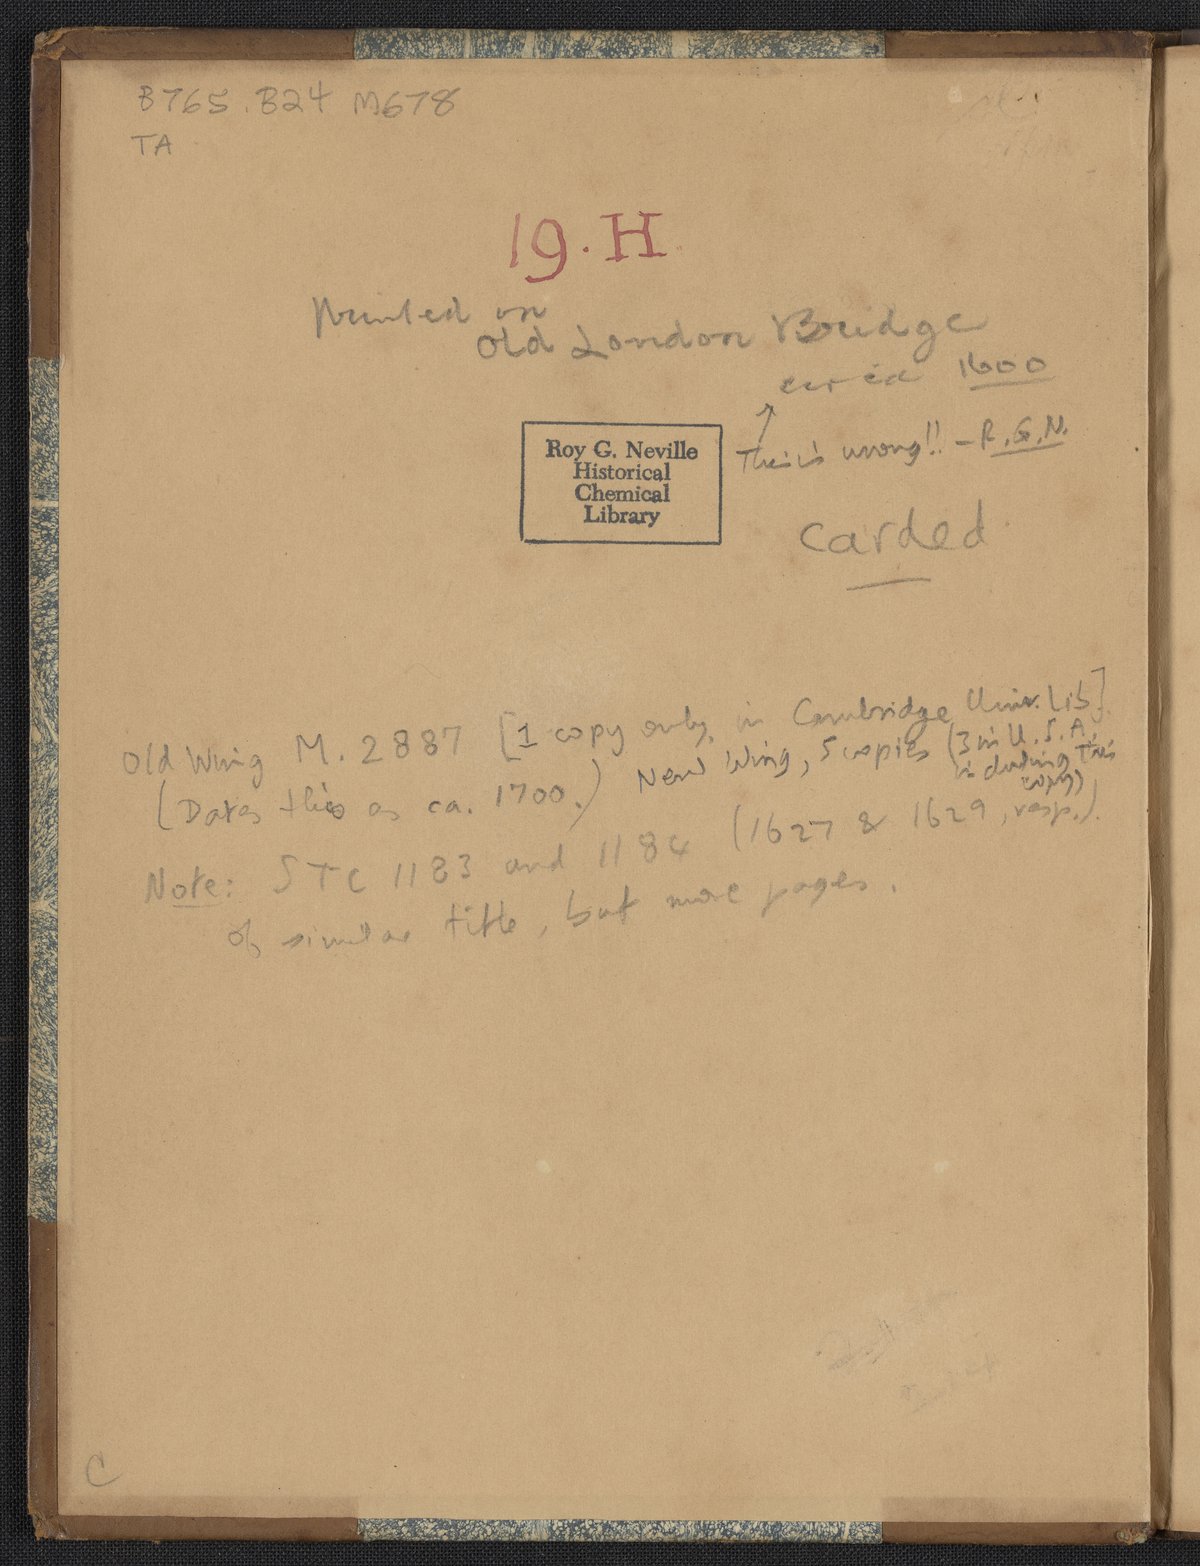 B765.B24 M678
TA
19.H
Printed on
Old London Bridge
circa 1600
This is wrong!! – R.G.N.
Roy G. Neville
Historical
Chemical
Library
Carded
Old Wing M.2887 [1 copy only, in Cambridge Univ. Lib].
(Dates this as ca. 1700.) New Wing, 5 copies (3 in U.S.A.
including this
copy)
Note: STC 1183 and 1184 (1627 & 1629, resp.).
of similar title, but more pages.
C